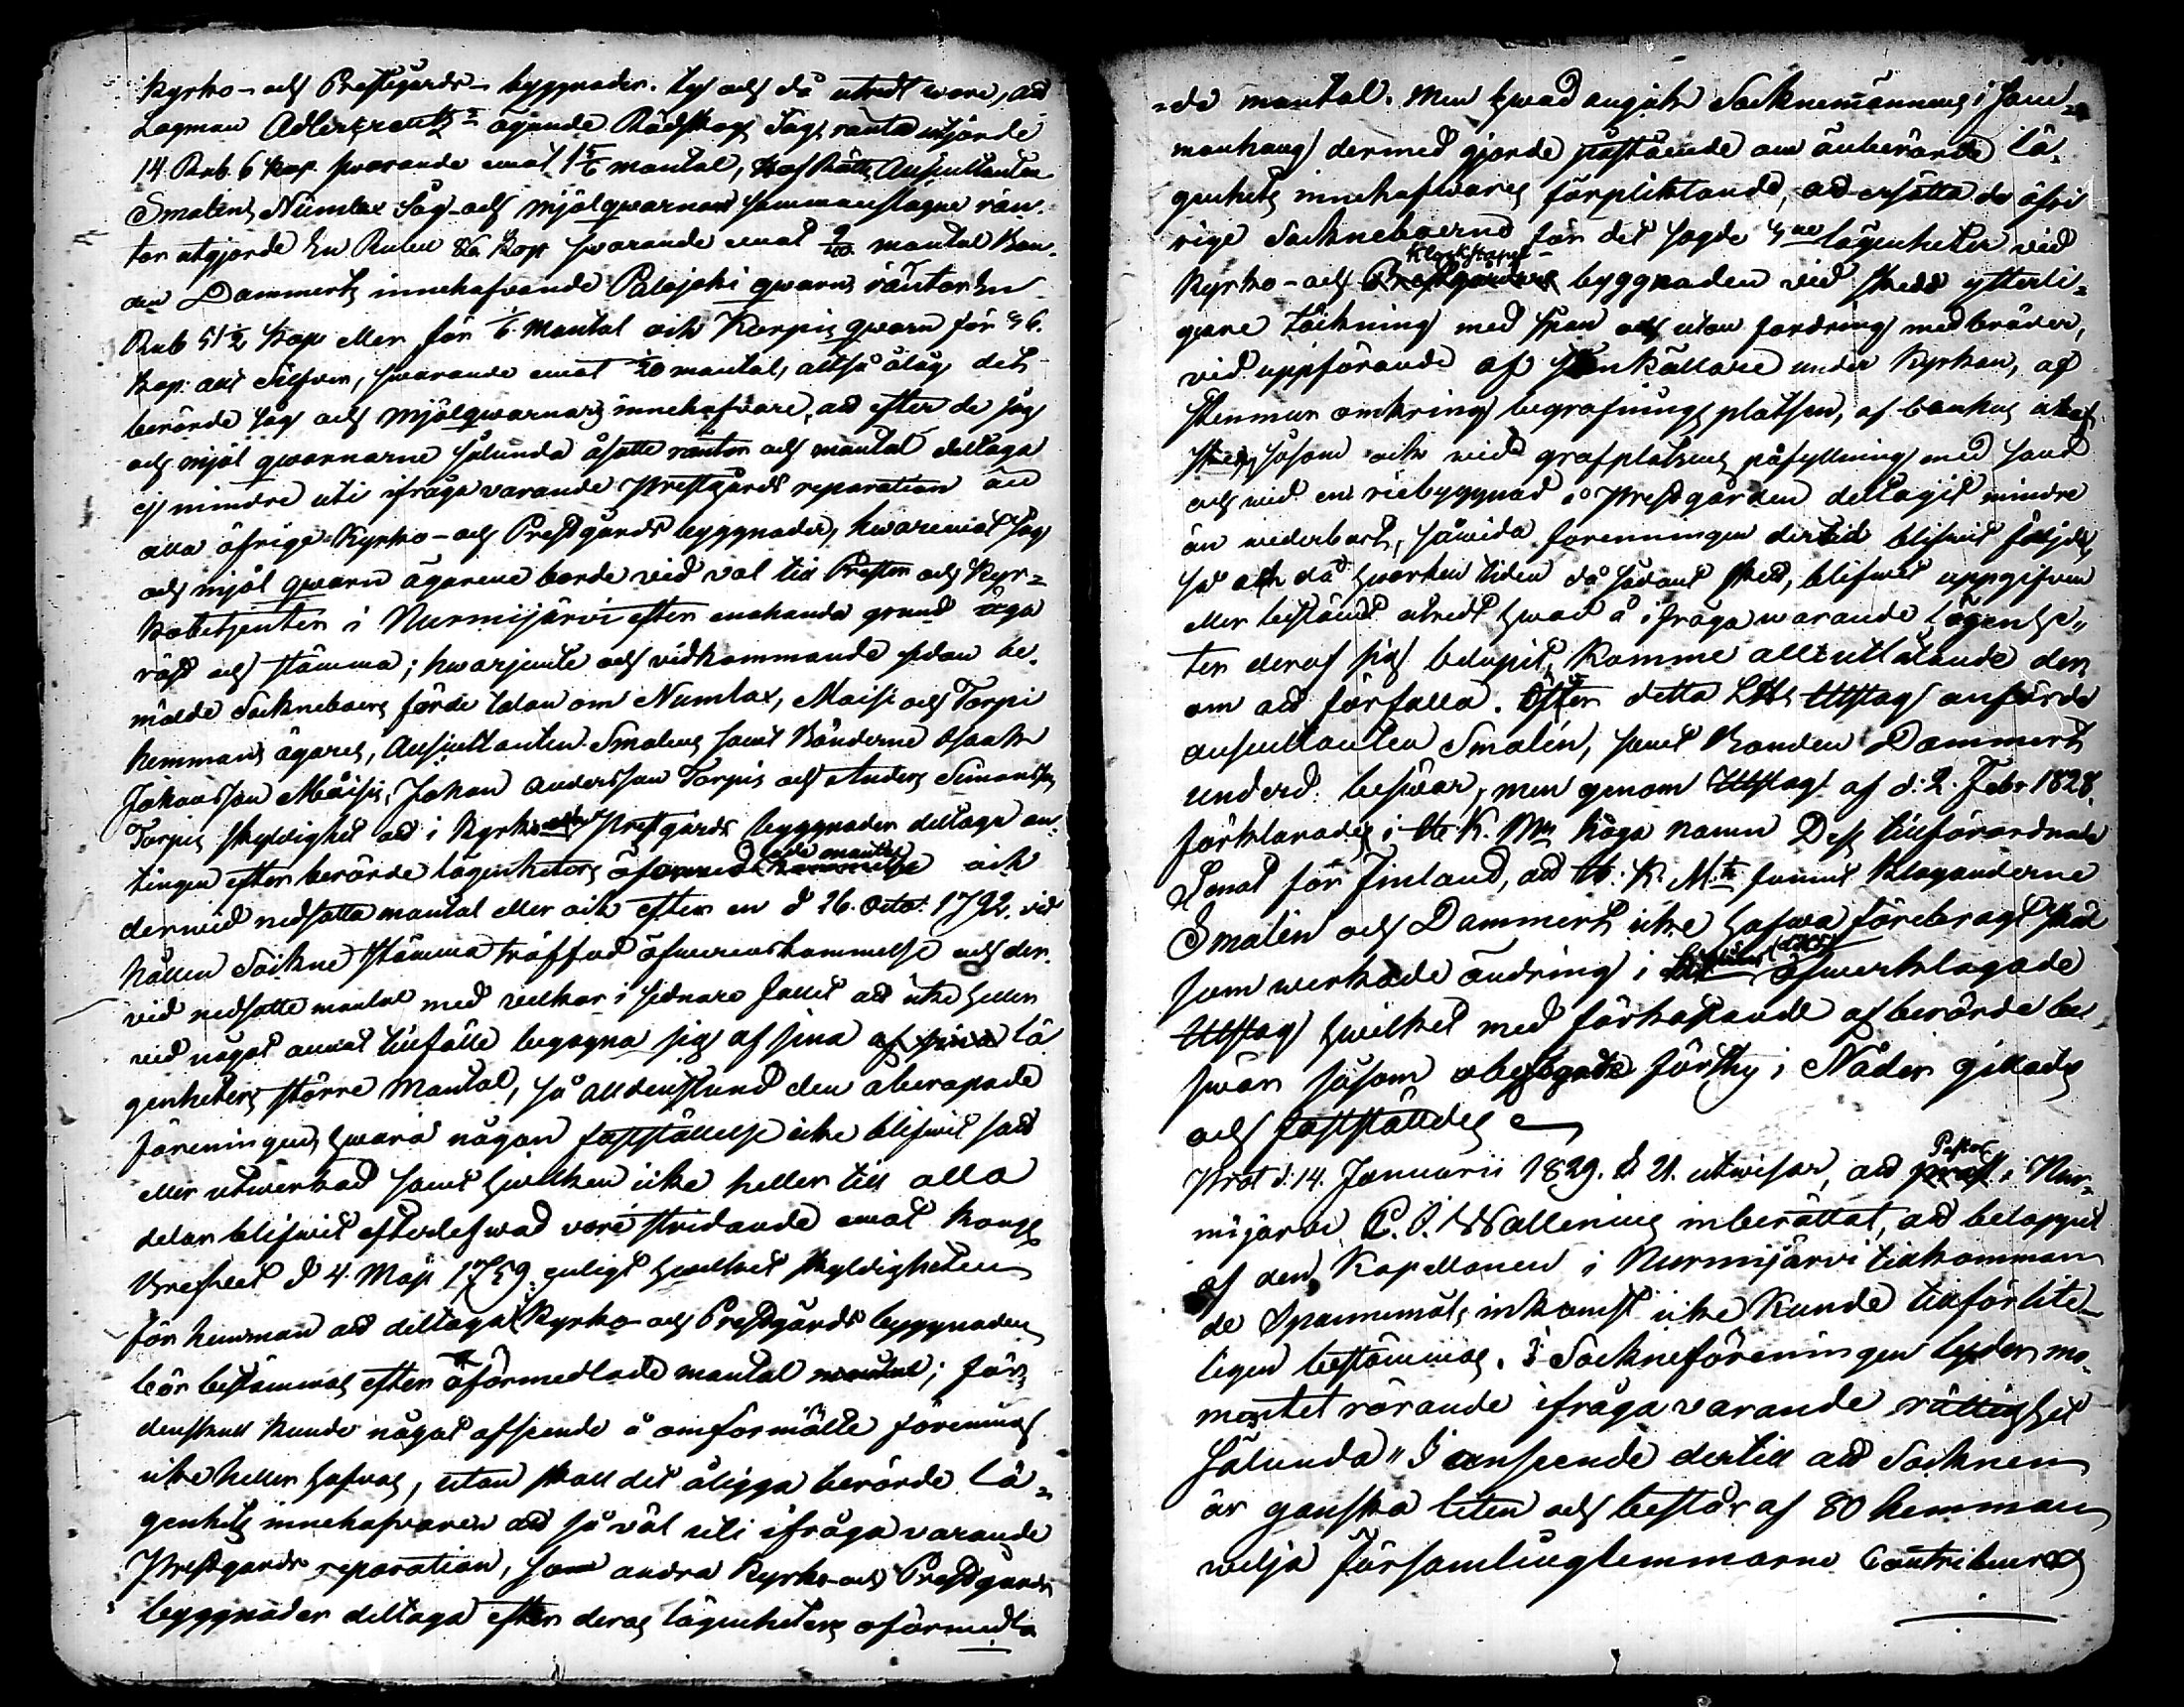 Kyrko- och Prestegårds- byggnader. Ty och då utredt wore, att
Lagman Adlercreutz's ägande Rådskogs Såg, ränta utgjorde
14 Rub. 6 kop. swarande emot 1 5/6 mantal, Hof Rätts Auscultanten
Smaléns Numlax Såg- och mjölqwarnars sammanslagne rän-
tor utgjorde En Rubel kop swarande emot 9/20 mantal Bon-
den Dammerts innehafvande Palojoki qwarns räntor En
Rub 51 1/2 kop eller för 1/6 Mantal och Karpis qwarn för 56.
kop: allt Silfver, swarande emot 1/20 mantal, altså ålåg det
berörde såg och mjölqwarnars innehafvare, att efter de såg
och mjöl qwarnarne sålunda åsatte räntor och mantal deltaga
ej mindre uti ifrågavarande Prestgårds reparation än
alla öfrige Kyrko- och Prestgårds byggnader, hwaremot såg
och mjöl qwarn ägarene borde vid val till Prester och Kyr-
kobetjenter i Nurmijärvi efter enahanda grund äga
röst och stämma; hwarjemte och vidkommande sedan be-
mälde Sockneboers förde talan om Numlax, Maisi och Torpi
hemmans ägares, Auscultanten Smaléns samt Bönderne Isaak
Johansson Maisis, Johan Andersson Torpis och Anders Simonsson
Torpis skyldighet att i Kyrko och Prestgårds byggnader deltaga an-
tingen efter berörde lägenheters oförmedlade mantal och
dermed nedsatta mantal eller och efter en d 26. Octob. 1792. vid
hållen Sockne stämma träffad öfwerenskommelse och der-
vid nedsatte mantal med vilkor i sednare fallet att icke heller
vid något annat tillfälle begagna sig af sina af sina lä-
genheters större mantal, så alldenstund den åberopade
föreningen, hwarå någon fastställelse icke blifwit sökt
eller utwerkad samt hwilken icke heller till alla
delar blifwit efterlefwad vore stridande emot Kongl
Brefwet d 4. Maji 1759. enligt hwilket skyldigheten
för hemman att deltaga i Kyrko- och Prestgårds byggnader
bör bestämmas efter oförmedlade mantal mantal; för-
denskull kunde något afseende å omförmälte förening
icke heller hafwas, utan skall det åligga berörde lä-
genhets innehafvaren att så väl uti ifrågavarande
Prestgårds reparation, som andra Kyrko- och Prestgårds
byggnader deltaga efter deras lägenheters oförmedla
-de mantal. Men hwad angick Socknemännens i sam-
manhang dermed gjorde påstående om ånberörde lä-
genhets innehafwares förpliktande, att ersätta de öfri
rige Socknebuernd för det sagde lägenheter vid
Klockstapel-
Kyrko- och Prestgårdens byggnaden vid skedd ytterli-
gare täckning med span och utan fordring med bräder,
vid uppförande af stenkällare under Kyrkan, af
stenmur omkring begrafnings platsen, af
såsom och vid grafplatsens påfyllning med sand
och vid en riebyggnad å Prestgården deltagit mindre
än wederbort, såwida föreningen dertid blifwit följd,
så och då hwarken tiden då sådant skedt, blifwit uppgifven
eller bestämdt utredt hwad å ifråga warande lägenhe-
ter deraf sig belupit, komme allt utlåtande der-
om att förfalla. Öfver detta Utslag anförde
auscultanten Smalén, samt Bonden Dammert
underd. beswär, men genom Utslag af d. 2. Febr 1828.
förklarades i H. K. Mts höga namn Dess tillförordnade
Senat för Finland, att H. K. Mt. funnit Klaganderne
Smalén och Dammert icke hafwa förebragt skäl
som werkade ändring i öfwerklagade
Utslag hwilket med förkastande af berörde be-
swär såsom obefogade förthy i Nåder gillades
och fastställdes
Pastor
Prot d. 14. Januarii 1829. § 21. utwisar, att prost i Nur-
mijärvi C. J. Wallenius inberättat, att beloppet
af den Kapellanen i Nurmijärvi tillkomman
de Spannemåls inkomst icke kunde tillförlite-
ligen bestämmas. I Sockneföreningen lyder mo-
mentet rörande ifrågavarande rättighet
Sålunda "I anseende dertill att Socknen
är ganska liten och består af 80 hemman
wilja församlingslemmarne Contribuera